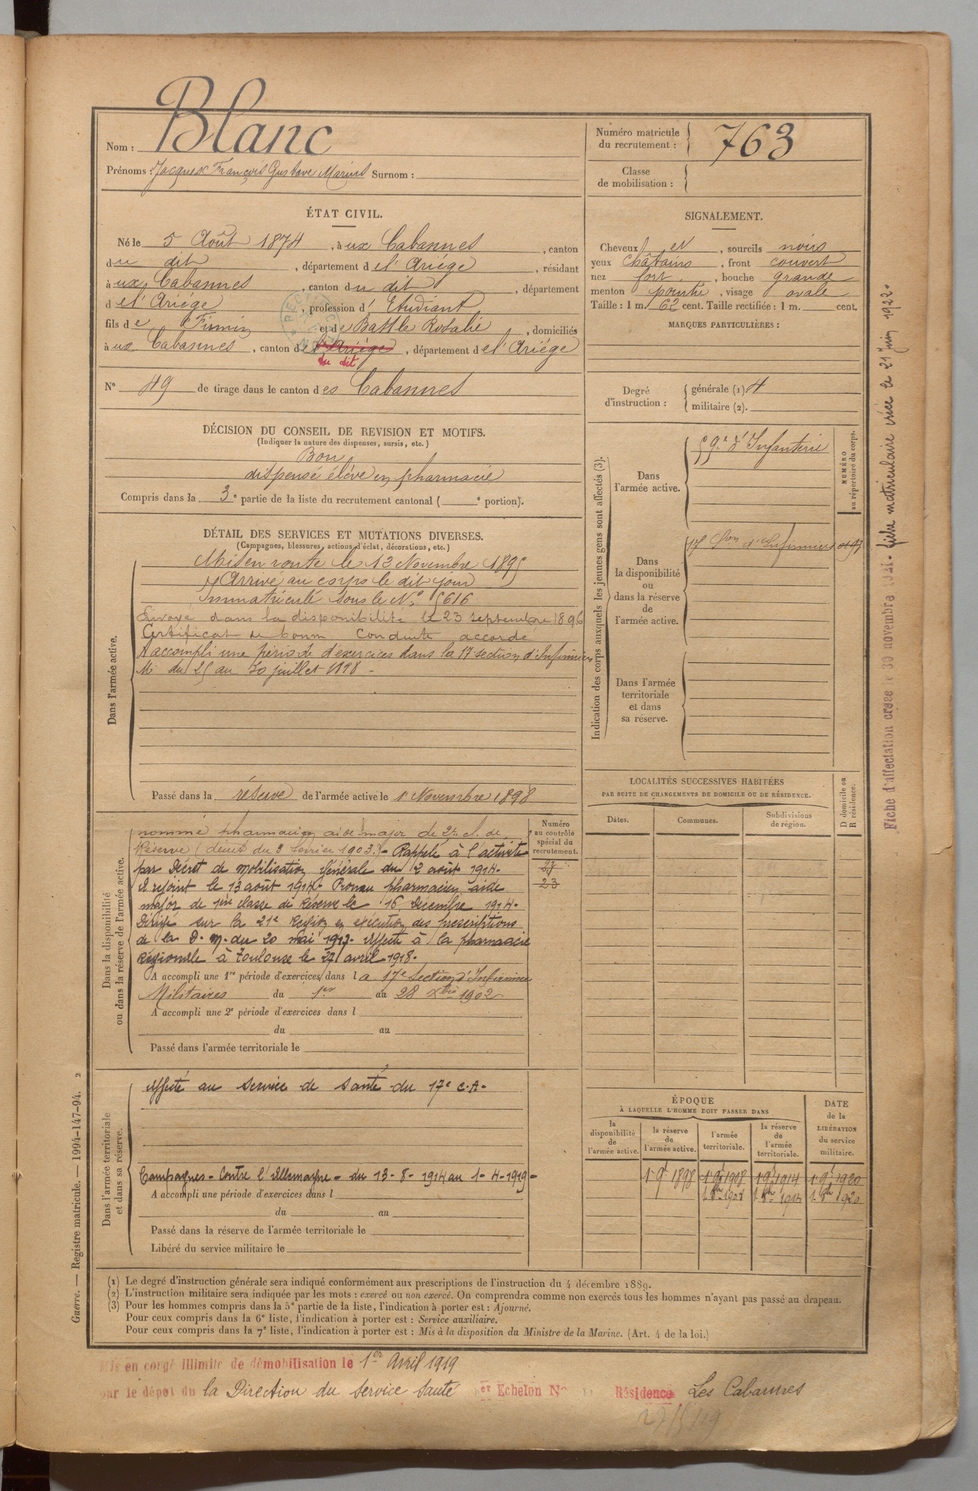 Nom : Blanc
Prénoms : Jacques François Gustave Marius Surnom :
Numéro matricule du recrutement : 763
Classe de mobilisation :
ÉTAT CIVIL.
Né le 5 Août 1874, à ux Cabannes, canton
du dit, département de l'Ariége, résidant
à ux Cabannes, canton du dit, département
de l'Ariége, profession d'Etudiant
fils de Firmin et de Battle Rosalie, domiciliés
à ux Cabannes, canton de l'Ariége, département de l'Ariége
du dit
N° 49 de tirage dans le canton des Cabannes
SIGNALEMENT.
Cheveux et, sourcils noirs
yeux châtains, front couvert
nez fort, bouche grande
menton pointu, visage ovale
Taille : 1 m. 62 cent. Taille rectifiée : 1 m. cent.
MARQUES PARTICULIÈRES :
Degré d'instruction : générale (1) 4
militaire (2).
DÉCISION DU CONSEIL DE REVISION ET MOTIFS.
(Indiquer la nature des dispenses, sursis, etc.)
Bon
dispensé élève en pharmacie
Compris dans la 3e partie de la liste du recrutement cantonal ( e portion).
DÉTAIL DES SERVICES ET MUTATIONS DIVERSES.
(Campagnes, blessures, actions d'éclat, décorations, etc.)
Dans l'armée active.
Mis en route le 12 Novembre 1895
Arrivé au corps le dit jour
Immatriculé sous le N° 5616
Envoyé dans la disponibilité le 23 septembre 1896
Certificat de bonne conduite accordé
A accompli une période d'exercices dans la 17 section d'Infirmiers
Mres du 25 au 30 juillet 1898 -
Passé dans la réserve de l'armée active le 1 Novembre 1898
Indication des corps auxquels les jeunes gens sont affectés (3).
Dans l'armée active.
59e d'Infanterie
NUMÉRO au répertoire du corps.
Dans la disponibilité ou dans la réserve de l'armée active.
17 Son d'Infirmiers
Dans l'armée territoriale et dans sa réserve.
LOCALITÉS SUCCESSIVES HABITÉES
PAR SUITE DE CHANGEMENTS DE DOMICILE OU DE RÉSIDENCE.
Dates.
Communes.
Subdivisions de région.
D domicile ou R résidence.
Dans la disponibilité ou dans la réserve de l'armée active.
Numéro au contrôle spécial du recrutement.
23
nommé pharmacien aide major de 2me cl. de
Réserve (décret du 8 février 1903.) - Rappelé à l'activité
par Décret de mobilisation générale du 2 août 1914.
A rejoint le 13 août 1914. Promu pharmacien aide
major de 1ère classe de Réserve le 16 Décembre 1914.
Dirigé sur la 21e Région en exécution des prescriptions
de la D.M. du 20 mai 1917. Affecté à la pharmacie
Régionale à Toulouse le 27 avril 1918.
A accompli une 1re période d'exercices dans la 17e Section d'Infirmiers
Militaires du 1er au 28 Xbre 1902
A accompli une 2e période d'exercices dans l
du au
Passé dans l'armée territoriale le
Dans l'armée territoriale et dans sa réserve.
Affecté au service de santé du 17e C.A.
Campagnes - Contre l'Allemagne - du 13-8-1914 au 1-4-1919 -
A accompli une période d'exercices dans l
du au
Passé dans la réserve de l'armée territoriale le
Libéré du service militaire le
ÉPOQUE
À LAQUELLE L'HOMME DOIT PASSER DANS
la disponibilité de l'armée active.
la réserve de l'armée active.
l'armée territoriale.
la réserve de l'armée territoriale.
DATE de la LIBÉRATION du service militaire.
1 9e 1898
(1) Le degré d'instruction générale sera indiqué conformément aux prescriptions de l'instruction du 4 décembre 1889.
(2) L'instruction militaire sera indiquée par les mots : exercé ou non exercé. On comprendra comme non exercés tous les hommes n'ayant pas passé au drapeau.
(3) Pour les hommes compris dans la 5e partie de la liste, l'indication à porter est : Ajourné.
Pour ceux compris dans la 6e liste, l'indication à porter est : Service auxiliaire.
Pour ceux compris dans la 7e liste, l'indication à porter est : Mis à la disposition du Ministre de la Marine. (Art. 4 de la loi.)
Mis en congé illimité de démobilisation le 1er Avril 1919
par le dépôt du la Direction du service santé er Echelon N° Résidence Les Cabannes
Guerre. — Registre matricule. — 1994-147-94. 2
Fiche d'affectation créée le 30 novembre 1921. fiche matriculaire créée le 21 juin 1922.